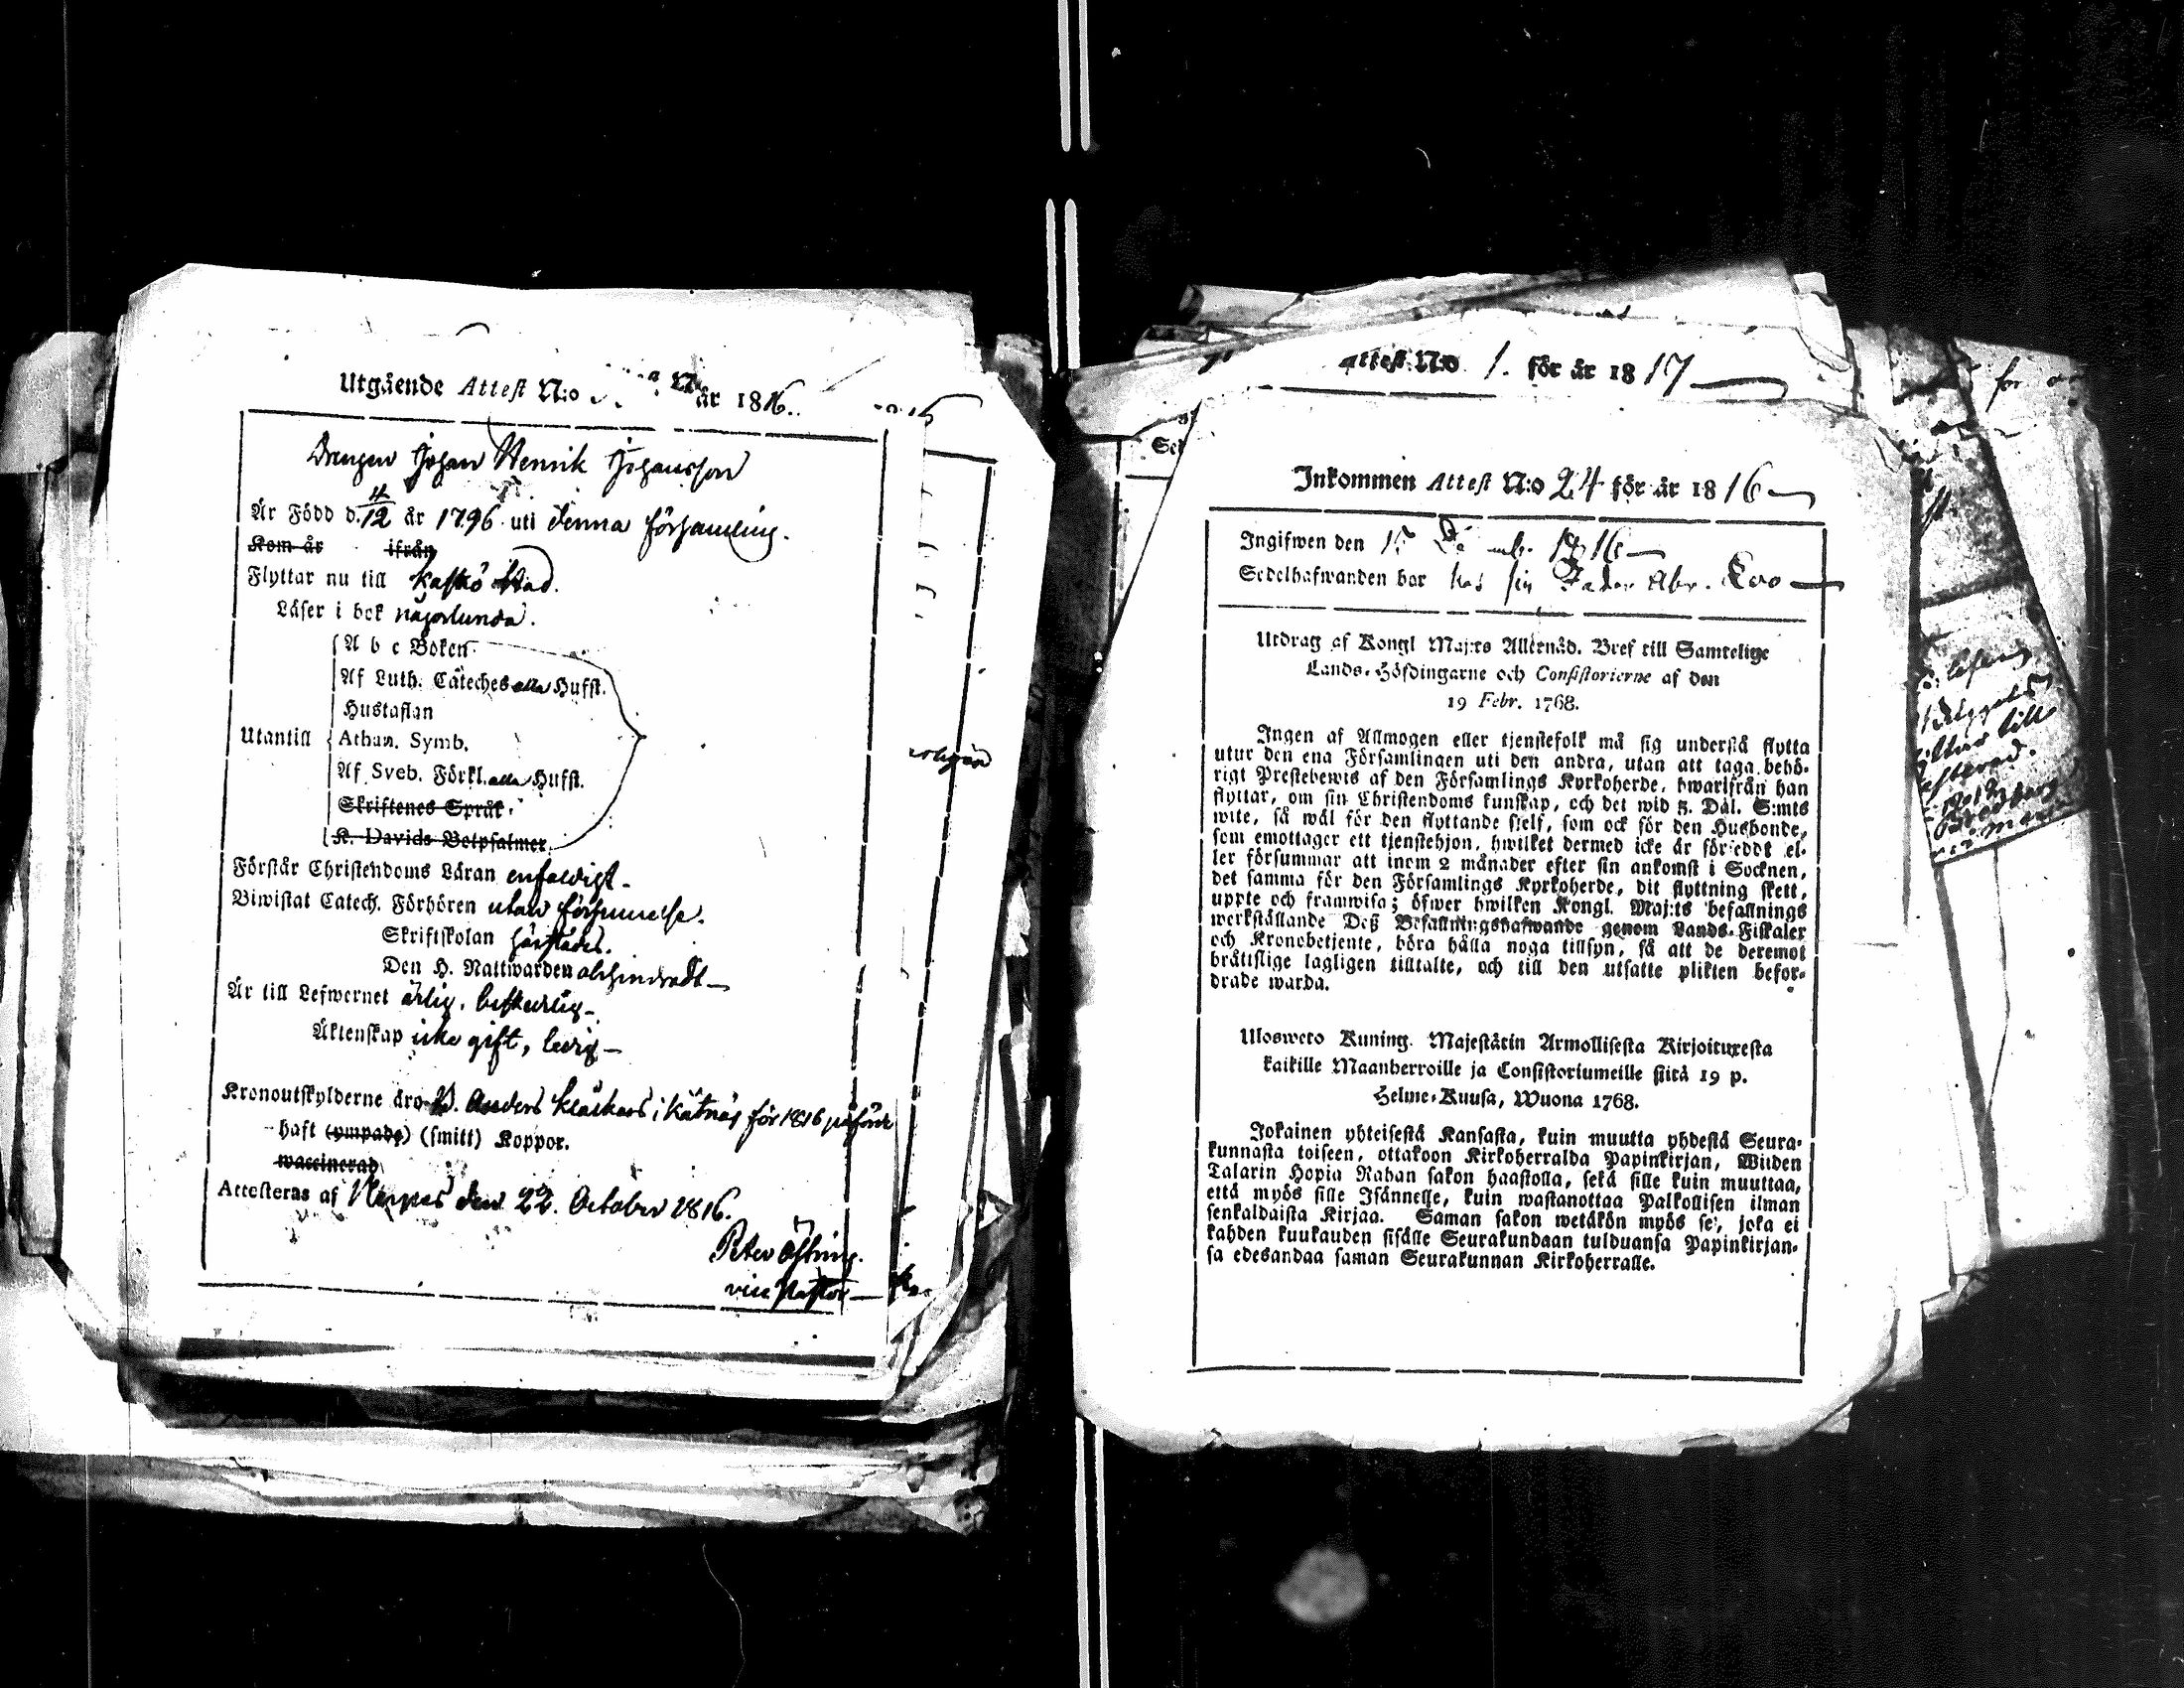 Utgående Attest N:o år 1816.
Drengen Johan Henrik Johansson
Är Född d. 4/12 år 1796 uti denna församling.
Kom år ifrån
Flyttar nu till Kaskö Stad.
Läser i bok någorlunda.
A b c Boken
Af Luth. Cateches alla Hufst.
Hustaflan
Utantill Athan. Symb.
Af Sveb. Förkl. alla Hufst.
Skriftenes Språk
K. Davids Botpsalmer
Förstår Christendoms Läran enfaldigt.
Biwistat Catech. Förhören utan försummelse.
Skriftskolan härstädes.
Den H. Nattwarden ohindradt
Är till Lefwernet ärlig, beskedlig
Äktenskap icke gift, ledig
Kronoutskylderne äro Anders Klåckars i Kåtnäs för 1816 påförde
haft (ympade) (smitt) Koppor.
waccinerad
Attesteras af Nerpes den 22. October 1816.
Peter
vice Pastor
Attest N:o 1. för år 1817
Inkommen Attest N:o 24 för år 1816
Ingifwen den 1816
Sedelhafwanden bor hos sin Fader Abr.
Utdrag af Kongl Maj:ts Allernåd. Bref till Samtelige
Lands-Höfdingarne och Consistorierne af den
19 Febr. 1768.
Ingen af Allmogen eller tjenstefolk må sig understå flytta
utur den ena Församlingen uti den andra, utan att taga behö-
rigt Prestebewis af den Församlings Kyrkoherde, hwarifrån han
flyttar, om sin Christendoms kunskap, och det wid 3. Dal. S:mts
wite, så wäl för den flyttande sjelf, som ock för den Husbonde,
som emottager ett tjenstehjon, hwilket dermed icke är försedt el-
ler försummar att inom 2 månader efter sin ankomst i Socknen,
det samma för den Församlings Kyrkoherde, dit flyttning skett,
uppte och framwisa; öfwer hwilken Kongl. Maj:ts befallnings
werkställande Deß Befallningshafwande genom Lands-Fiskaler
och Kronobetjente, böra hålla noga tillsyn, så att de deremot
bråtslige lagligen tilltalte, och till den utsatte plikten befor-
drade warda.
Ulosweto Kuning. Majestätin Armollisesta Kirjoituxesta
kaikille Maanherroille ja Consistoriumeille siitä 19 p.
Helme-Kuusa, Wuona 1768.
Jokainen yhteisestä Kansasta, kuin muutta yhdestä Seura-
kunnasta toiseen, ottakoon Kirkoherralda Papinkirjan, Wiiden
Talarin Hopia Rahan sakon haastolla, sekä sille kuin muuttaa,
että myös sille Isännelle, kuin wastanottaa Palkollisen ilman
senkaldaista Kirjaa. Saman sakon wetäkön myös se, joka ei
kahden kuukauden sisälle Seurakundaan tulduansa Papinkirjan-
sa edesandaa saman Seurakunnan Kirkoherralle.